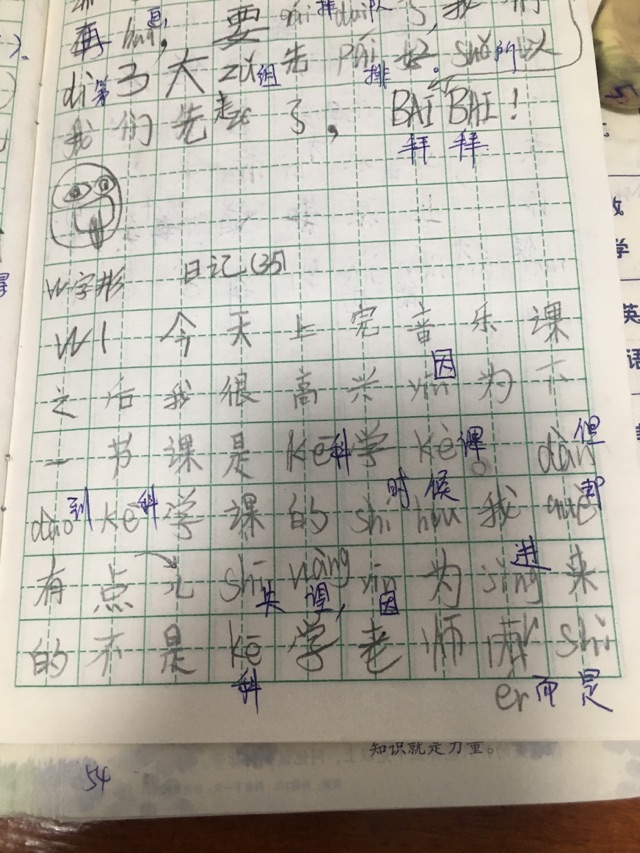 再 huà, 要 pái 排 duì 队 了, 我 们
dì 第 3 大 zǔ 组 先 pái 排 好。suǒ 所 以
我 们 先 走 了, BAI BAI!
拜 拜
W字形 日记(35)
W1 今 天 上 完 音 乐 课
之 后 我 很 高 兴 yīn 因 为 下
一 节 课 是 kē 科 学 kè 课。dàn 但
dào 到 kē 科 学 课 的 shí hou 时 候 我 què 却
有 点 儿 shī wàng 失 望, yīn 因 为 jìng 进 来
的 不 是 kē 科 学 老 师 shì
er 而 是
知识就是力量。
54
英
语
学